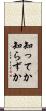 知ってか
知らずか